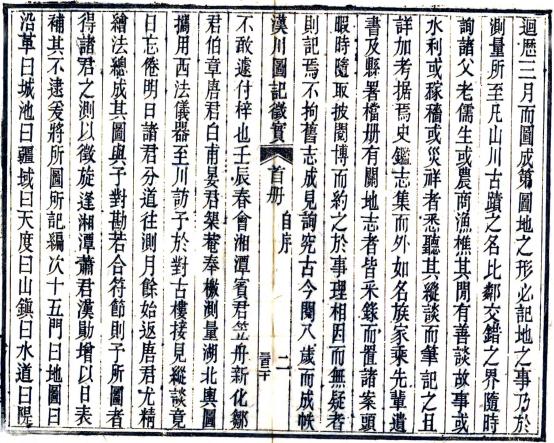 迴歷三月而圖成第圖地之形必記地之事乃於
測量所至凡山川古蹟之名比鄰交錯之界隨時
詢諸父老儒生或農商漁樵其閒有善談故事或
水利或稼穡或災祥者悉聽其縱談而筆記之且
詳加考据焉史鑑志集而外如名族家乘先輩遺
書及縣署檔册有關地志者皆采錄而置諸案頭
暇時隨取披閱博而約之於事理相因而無疑者
則記焉不拘舊志成見詢究古今閱八歲而成帙
漢川圖記徵實 首册 自序 二
不敢遽付梓也壬辰春會湘潭賓君笠册新化鄒
君伯章唐君白甫晏君槊菴奉檄測量湖北輿圖
攜用西法儀器至川訪予於對古樓接見縱談竟
日忘倦明日諸君分道往測月餘始返唐君尤精
繪法總成其圖與予對勘若合符節則予所圖者
得諸君之測以徵旋逢湘潭蕭君漢勛增以日表
補其不逮爰將所圖所記編次十五門曰地圖曰
沿革曰城池曰疆域曰天度曰山鎮曰水道曰隄